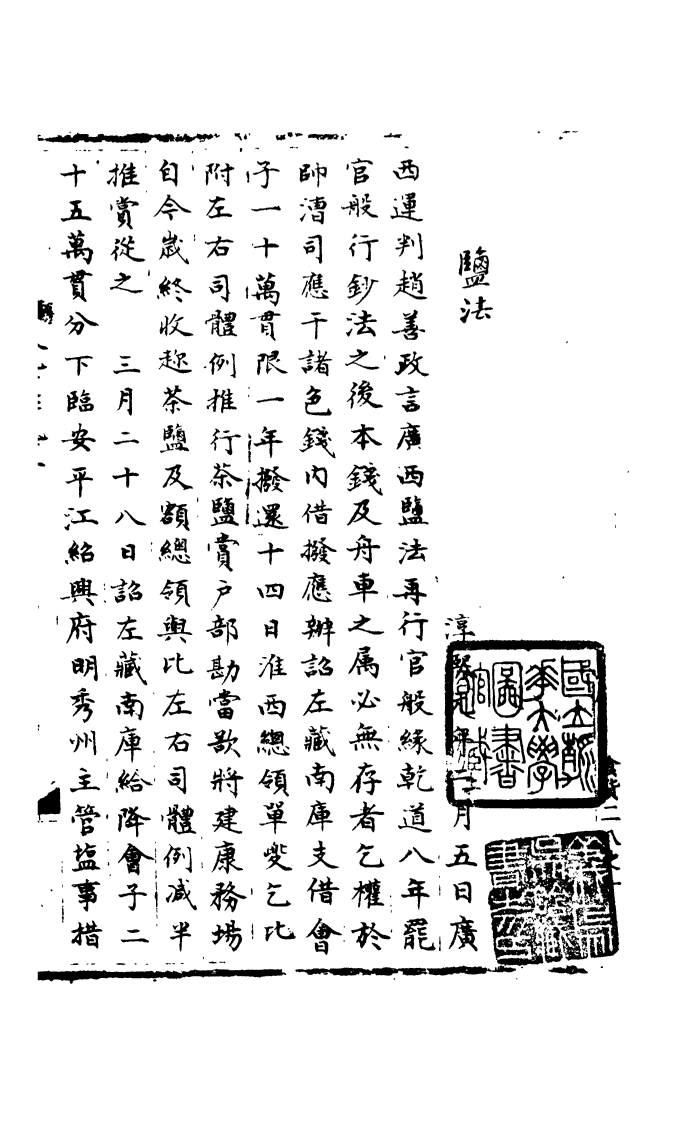 鹽法
淳熙元年二月五日廣
西運判趙善政言廣西鹽法再行官般緣乾道八年罷
官般行鈔法之後本錢及舟車之属必無存者乞權於
帥漕司應干諸色錢內借撥應辦詔左藏南庫支借會
子一十萬貫限一年撥還十四日淮西總領單夔乞比
附左右司體例推行茶鹽賞户部勘當欲將建康務場
自今歲終收趂茶鹽及額總領與比左右司體例减半
推賞從之　三月二十八日詔左藏南庫給降會子二
十五萬貫分下臨安平江紹興府明秀州主管塩事措
國立北平大學圖書館